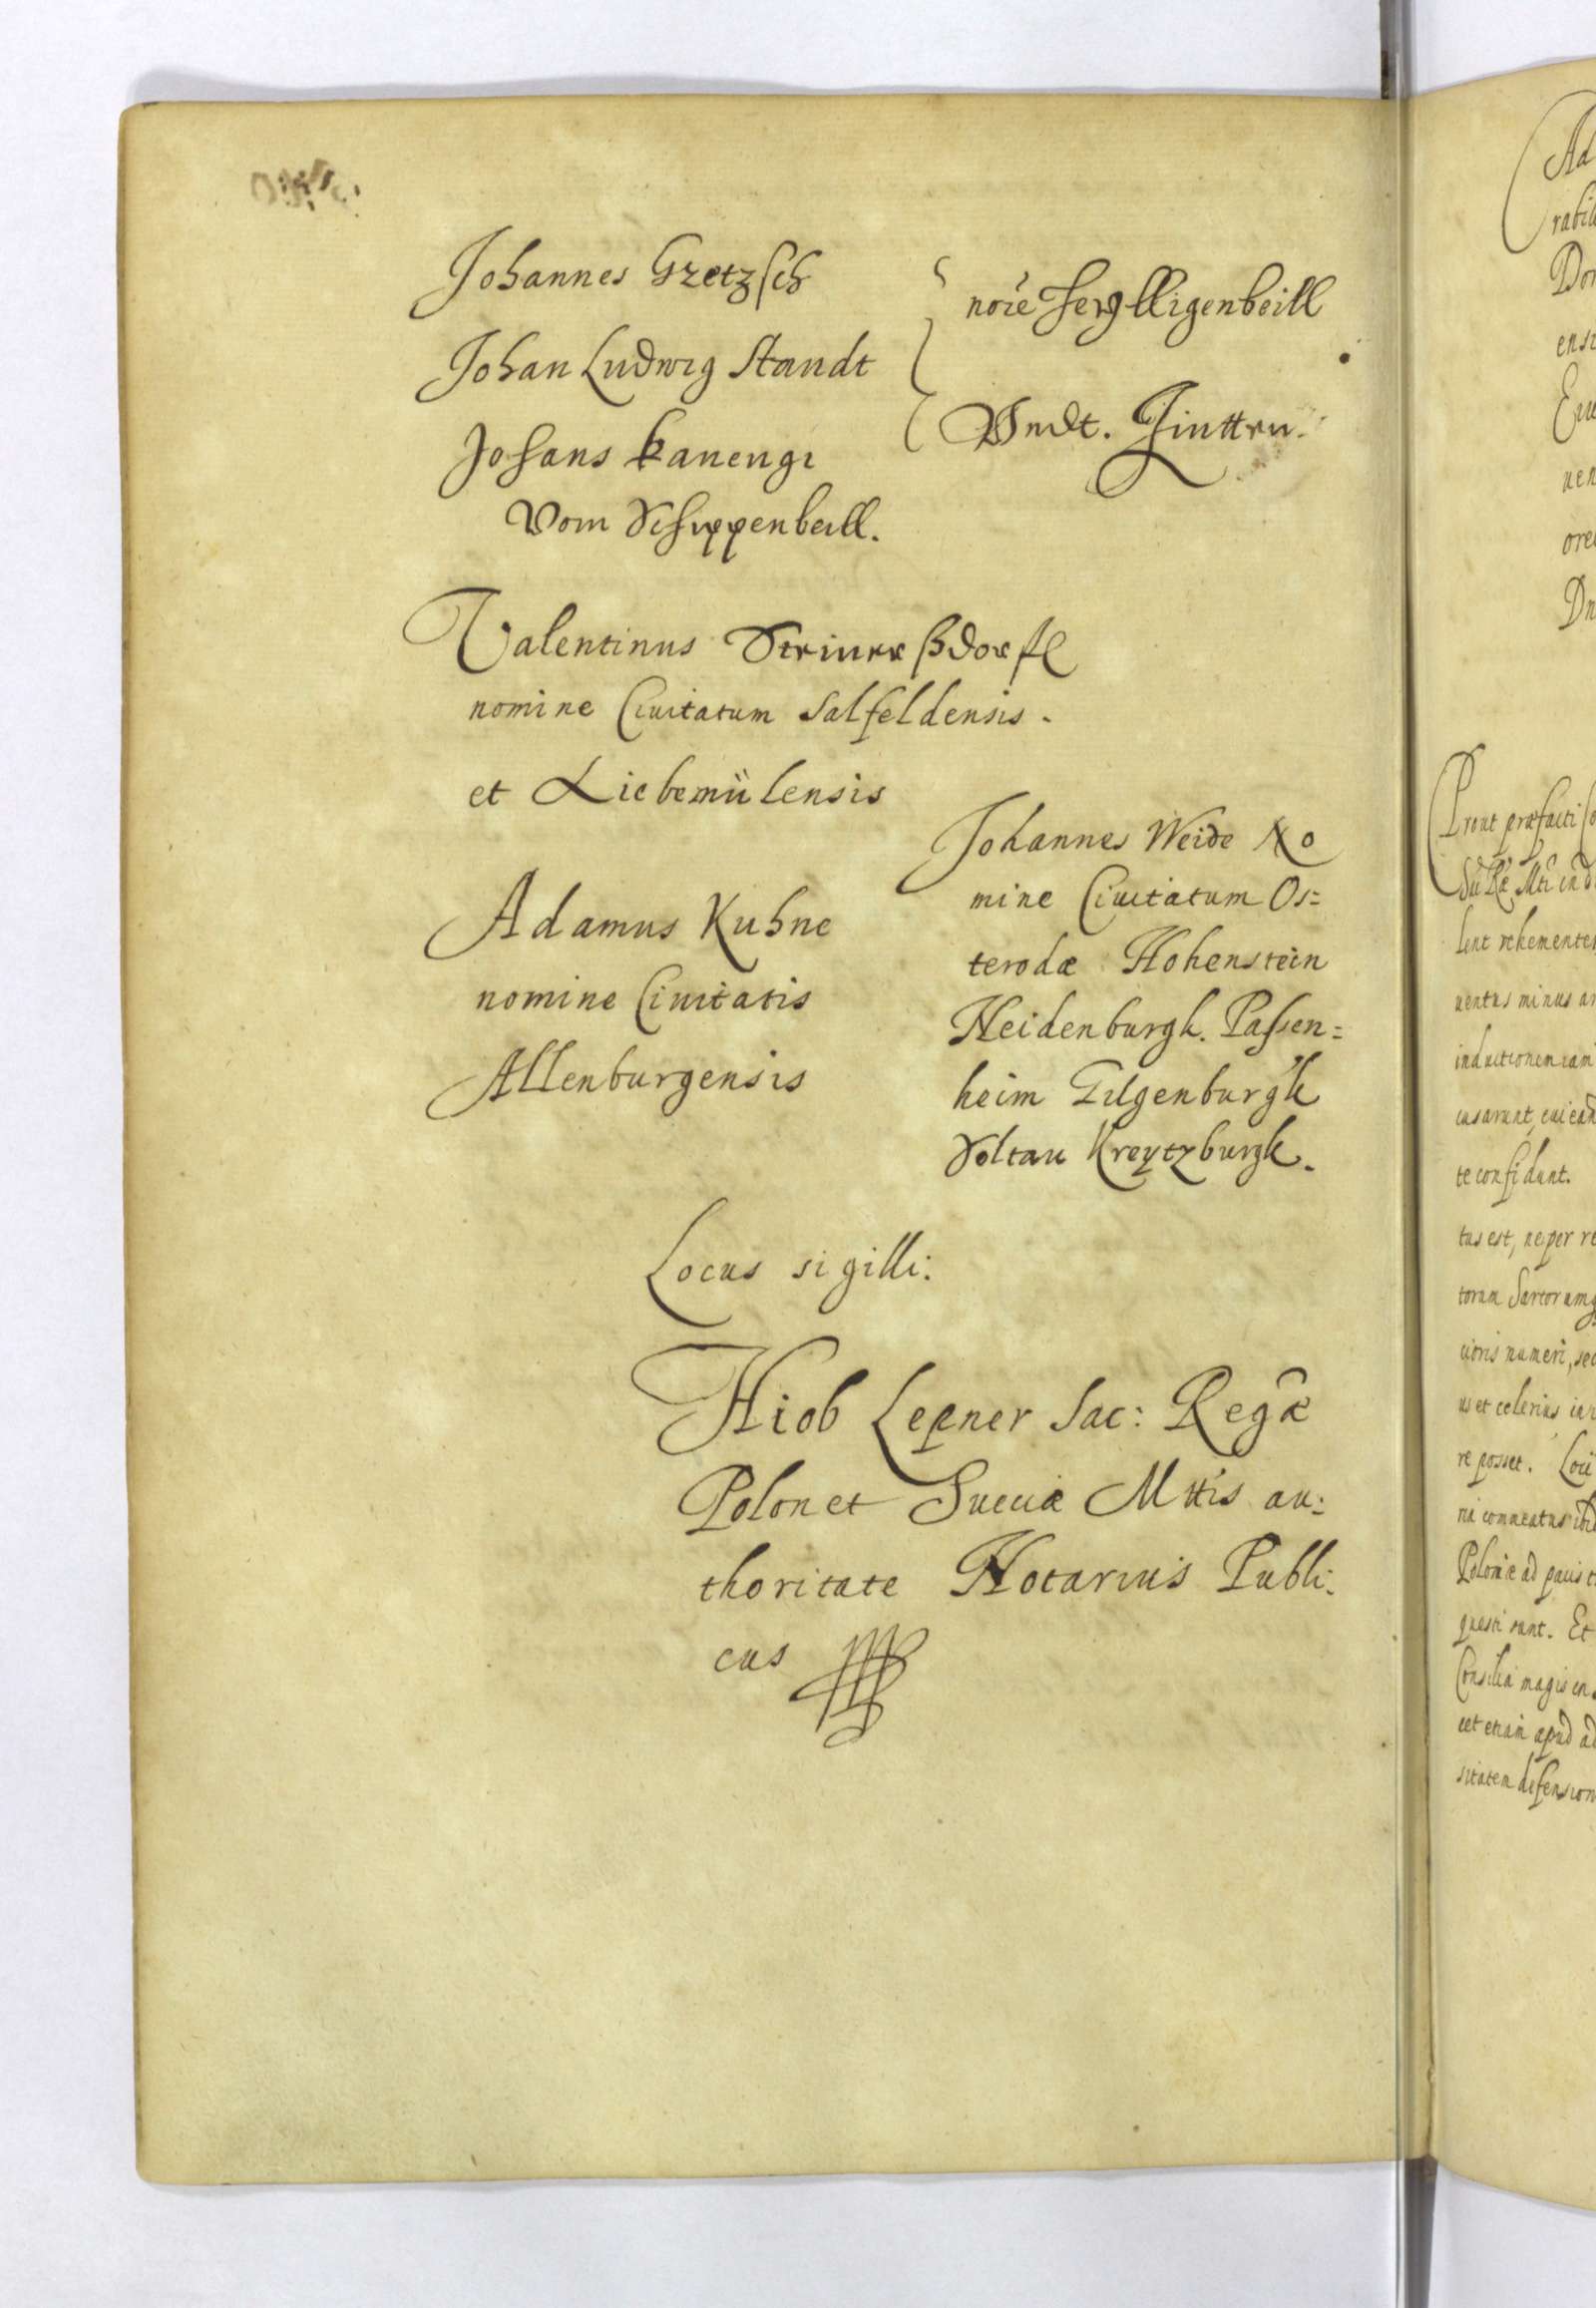 Johannes Gretzsch
Johan Ludwig Standt
noĩe Heylligenbeill
Vndt. Zintten.
Johans Kanengi
Vom Schippenbeill.
Valentinus
nomine Ciuitatum Salfeldensis.
et Liebemülensis
Adamus Kuhne
nomine Ciuitatis
Allenburgensis
Johannes Weide No
mine Ciuitatum Os=
terodæ Hohenstein
Neidenburgk. Passen=
heim Gilgenburgk
Soltau Kreytzburgk.
Locus sigilli:
Hiob Lepner Sac: Regæ
Polon et Sueciæ Mttis au:
thoritate Notarius Publi:
cus
Ad
Dor
Prout præfacti
lent vehementer
uentus minus
inductionem iam
cusarunt, cui
te confidunt.
tus est, ne per
torum Sartorumq
cioris numeri, sec
us et celerius
re posset. Loci
ria commeatus
Poloniæ ad
questi sunt. Et
Consilia magis en
cet etiam apud ad
sitatem defension